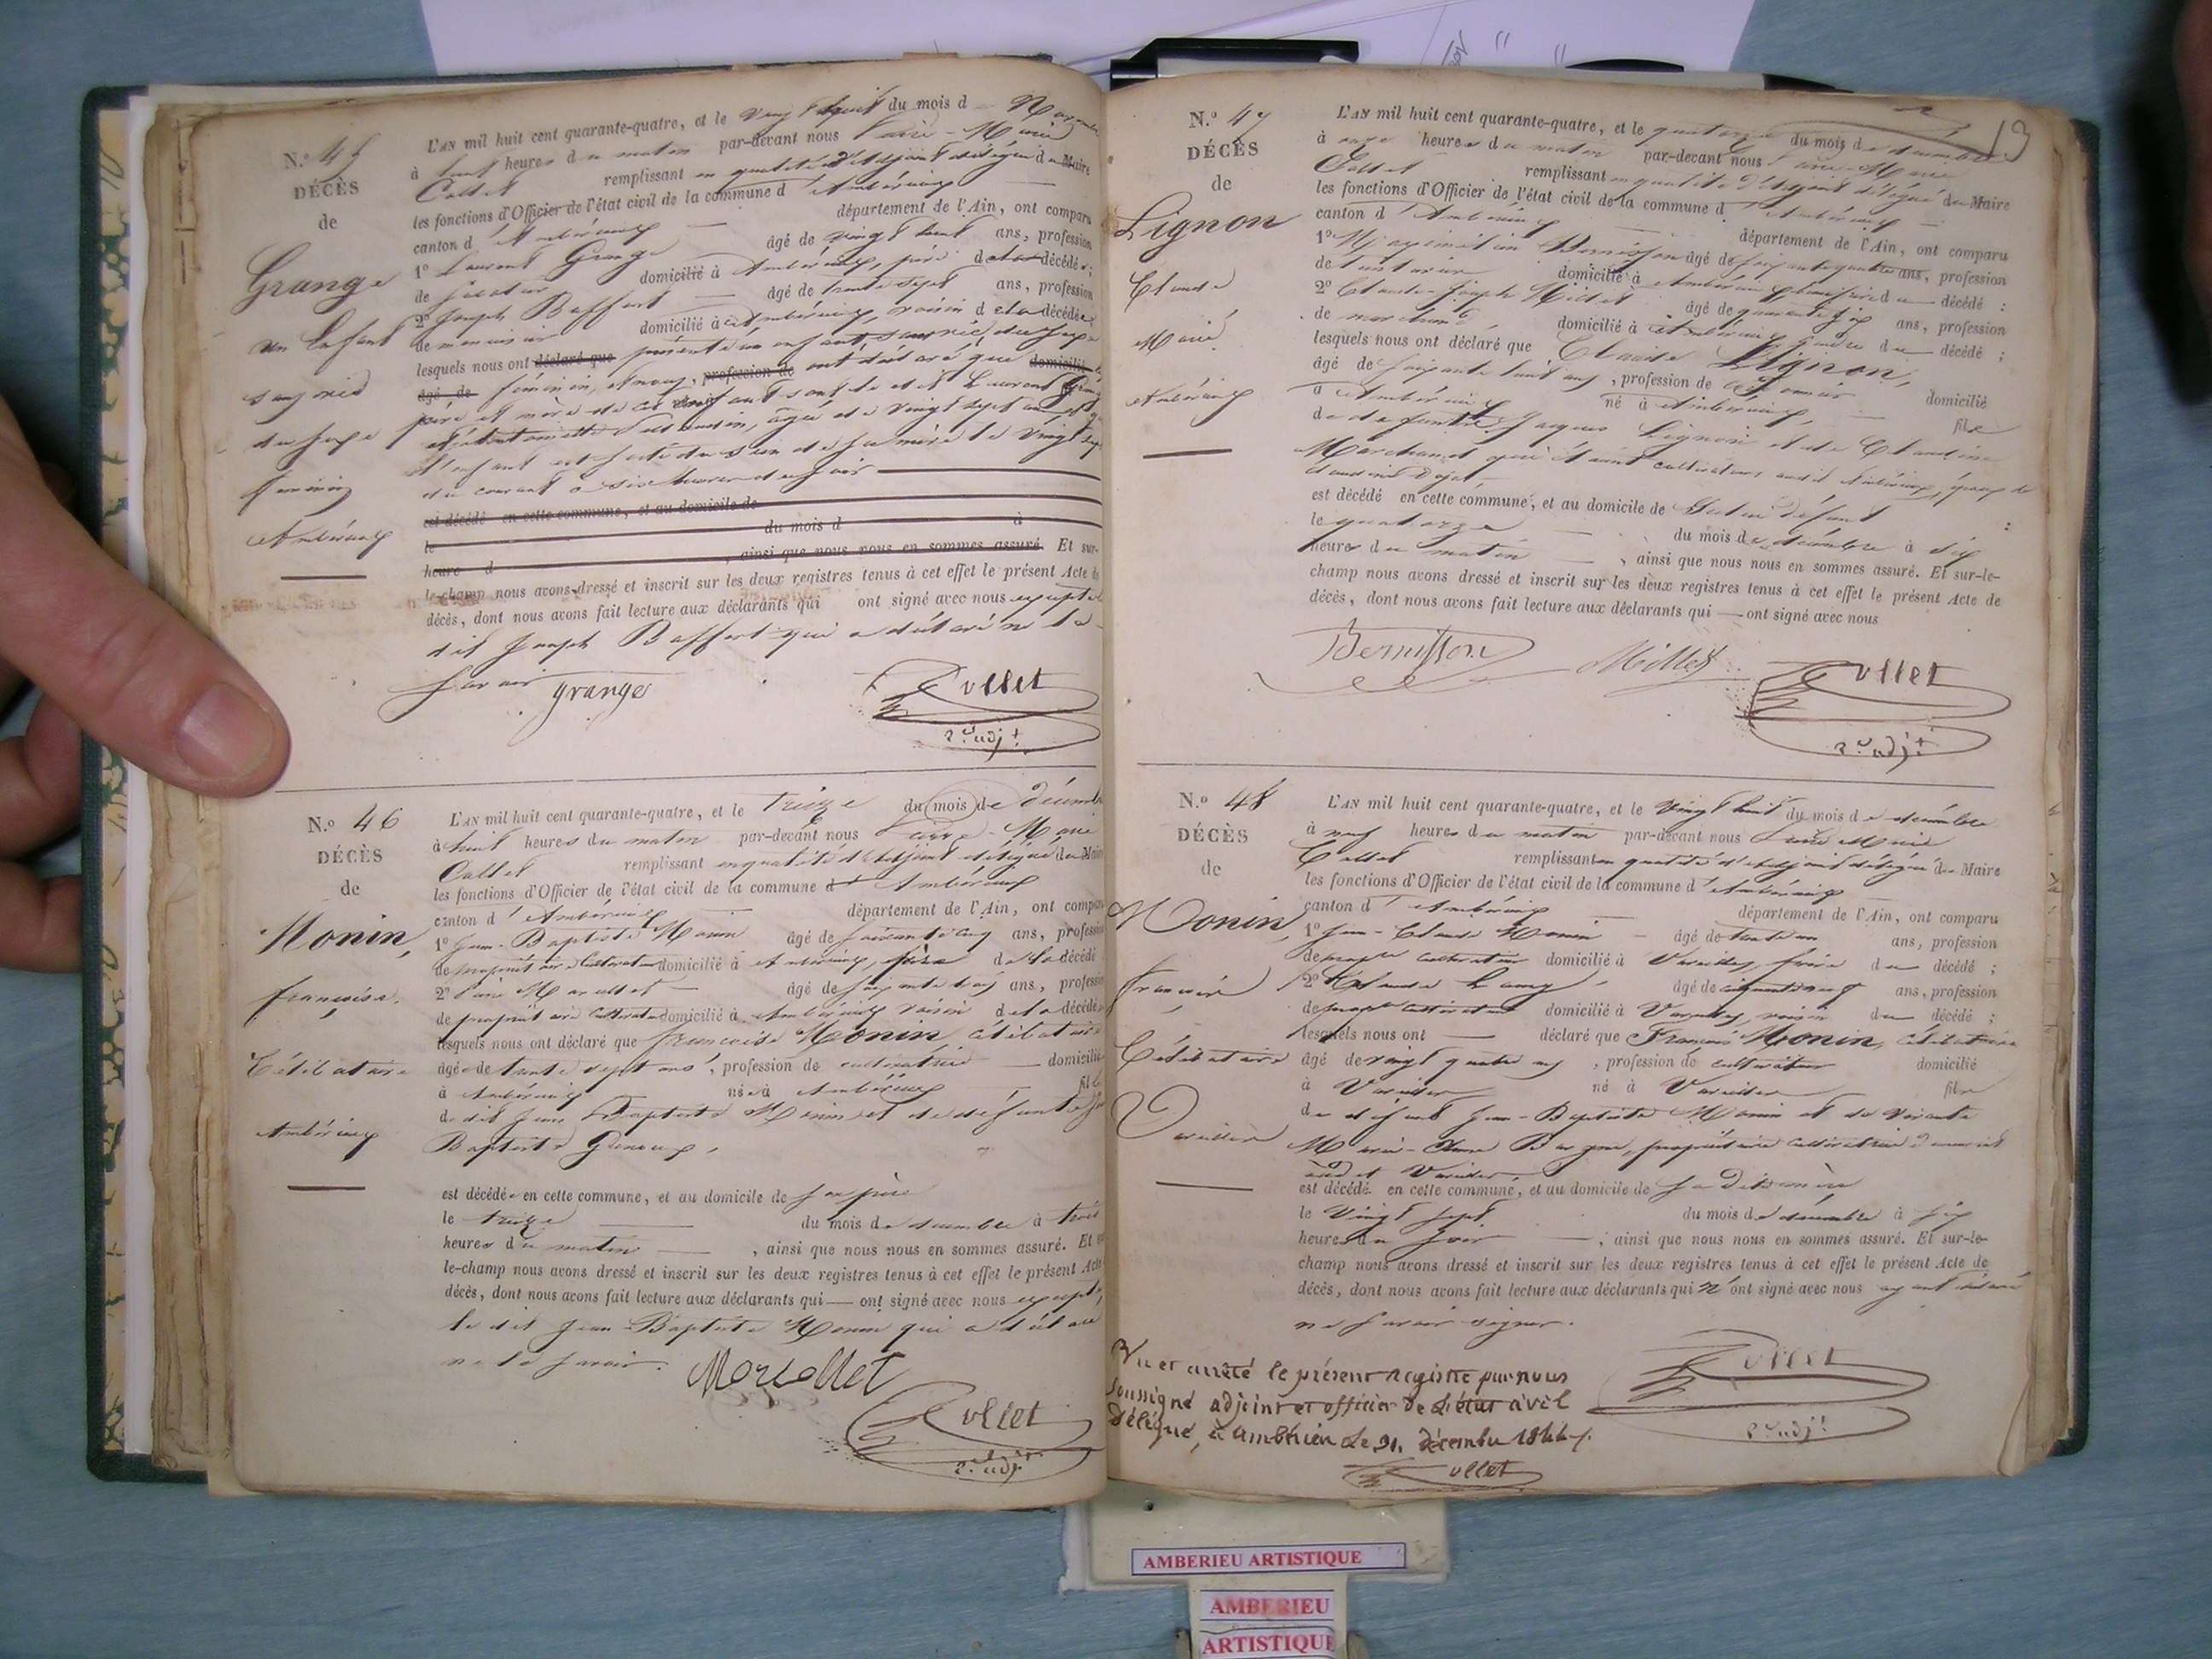 N.º 45
DÉCÈS
de
Grange
un Enfant
du sexe
féminin
Ambérieux
L'AN mil huit cent quarante-quatre, et le vingt huit du mois d
à huit heures du matin par-devant nous Pierre-Marie
Collet remplissant en qualité d'Adjoint délégué du Maire
les fonctions d'Officier de l'état civil de la commune d'Ambérieux
canton d'Ambérieux département de l'Ain, ont comparu
1º Laurent Grange âgé de vingt huit ans, profession
de domicilié à Ambérieux, père de la décédée;
2º Joseph Baffert âgé de trente sept ans, profession
de menuisier domicilié à Ambérieux, voisin de la décédée
lesquels nous ont déclaré que présenté un enfant du sexe
âgé de féminin, et nous, profession de ont déclaré que domicilié
père et mère de cet enfant sont le dit Laurent
âgée de vingt sept ans
l'enfant est sorti du sein de sa mère le vingt sept
du courant à six heures du soir
est décédé en cette commune, et au domicile de
le du mois d à
heure d , ainsi que nous nous en sommes assuré. Et sur-
le-champ nous avons dressé et inscrit sur les deux registres tenus à cet effet le présent Acte de
décès, dont nous avons fait lecture aux déclarants qui ont signé avec nous excepté le
dit Joseph Baffert qui a déclaré ne le
savoir
grange
Collet
2e adjt
N.º 46
DÉCÈS
de
Monin,
françoise.
Célibataire
Ambérieux
L'AN mil huit cent quarante-quatre, et le treize du mois de décembre
à huit heures du matin par-devant nous Pierre-Marie
Collet remplissant en qualité d'adjoint délégué du Maire
les fonctions d'Officier de l'état civil de la commune d'Ambérieux
canton d'Ambérieux département de l'Ain, ont comparu
1º Jean-Baptiste Monin âgé de soixante cinq ans, profession
de propriétaire cultivateur domicilié à Ambérieux, père de la décédée
2º Pierre âgé de soixante ans, profession
de propriétaire cultivateur domicilié à Ambérieux voisin de la décédée
lesquels nous ont déclaré que françoise Monin célibataire
âgée de trente sept ans, profession de cultivatrice domiciliée
à Ambérieux née à Ambérieux fille
de dit Jean Baptiste Monin et de défunte
Baptiste
est décédée en cette commune, et au domicile de son père
le treize du mois de décembre à trois
heures du matin , ainsi que nous nous en sommes assuré. Et
le-champ nous avons dressé et inscrit sur les deux registres tenus à cet effet le présent Acte
décès, dont nous avons fait lecture aux déclarants qui ont signé avec nous excepté
le dit Jean-Baptiste Monin qui a déclaré
ne le savoir.
Collet
2e adjt
13
N.º 47
DÉCÈS
de
Lignon
Claude
Marié
Ambérieux
L'AN mil huit cent quarante-quatre, et le quatorze du mois de décembre
à onze heures du matin par-devant nous Pierre-Marie
Collet remplissant en qualité d'adjoint délégué du Maire
les fonctions d'Officier de l'état civil de la commune d'Ambérieux
canton d'Ambérieux département de l'Ain, ont comparu
1º Maximilien âgé de soixante quatre ans, profession
de domicilié à Ambérieux du décédé :
2º Claude-Joseph Millet âgé de quarante six ans, profession
de marchand domicilié à Ambérieux, gendre du décédé ;
lesquels nous ont déclaré que Claude Lignon,
âgé de soixante huit ans, profession de domicilié
à Ambérieux né à Ambérieux, fils
de défunts Jacques Lignon et de Claudine
Marchand qui étaient cultivateurs audit Ambérieux, époux de
est décédé en cette commune, et au domicile de
le quatorze du mois de décembre à six
heures du matin , ainsi que nous nous en sommes assuré. Et sur-le-
champ nous avons dressé et inscrit sur les deux registres tenus à cet effet le présent Acte de
décès, dont nous avons fait lecture aux déclarants qui ont signé avec nous
Millet
Collet
2e adjt
N.º 48
DÉCÈS
de
Monin,
François
Célibataire
Vareilles
L'AN mil huit cent quarante-quatre, et le vingt huit du mois de décembre
à neuf heures du matin par-devant nous Pierre Marie
Collet remplissant en qualité d'adjoint délégué du Maire
les fonctions d'Officier de l'état civil de la commune d'Ambérieux
canton d'Ambérieux département de l'Ain, ont comparu
1º Jean-Claude Monin âgé de trente un ans, profession
de propre cultivateur domicilié à Vareilles, frère du décédé ;
2º Claude âgé de cinquante neuf ans, profession
de propre cultivateur domicilié à Vareilles, voisin du décédé ;
lesquels nous ont déclaré que François Monin, célibataire
âgé de vingt quatre ans, profession de cultivateur domicilié
à Vareilles né à Vareilles fils
de défunt Jean-Baptiste Monin et de vivante
Marie-Anne propriétaire cultivatrice
audit Vareilles
est décédé en cette commune, et au domicile de sa dite mère
le vingt sept du mois de décembre à six
heures du soir , ainsi que nous nous en sommes assuré. Et sur-le-
champ nous avons dressé et inscrit sur les deux registres tenus à cet effet le présent Acte de
décès, dont nous avons fait lecture aux déclarants qui n'ont signé avec nous ayant déclaré
ne savoir signer.
Collet
2e adjt
Vu et arrêté le présent registre par nous
soussigné adjoint et officier de l'état civil
Délégué, à ambérieu Le 31 décembre 1844.
Collet
AMBERIEU ARTISTIQUE
AMBERIEU
ARTISTIQUE